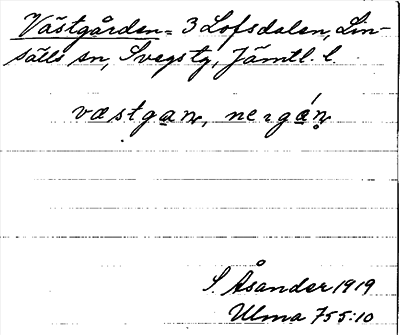 Västgården = 3 Lofsdalen, Lin-
sälls sn, Svegs tg, Jämtl. l.
væstgan, nergán
S. Åsander 1919
Ulma 755:10